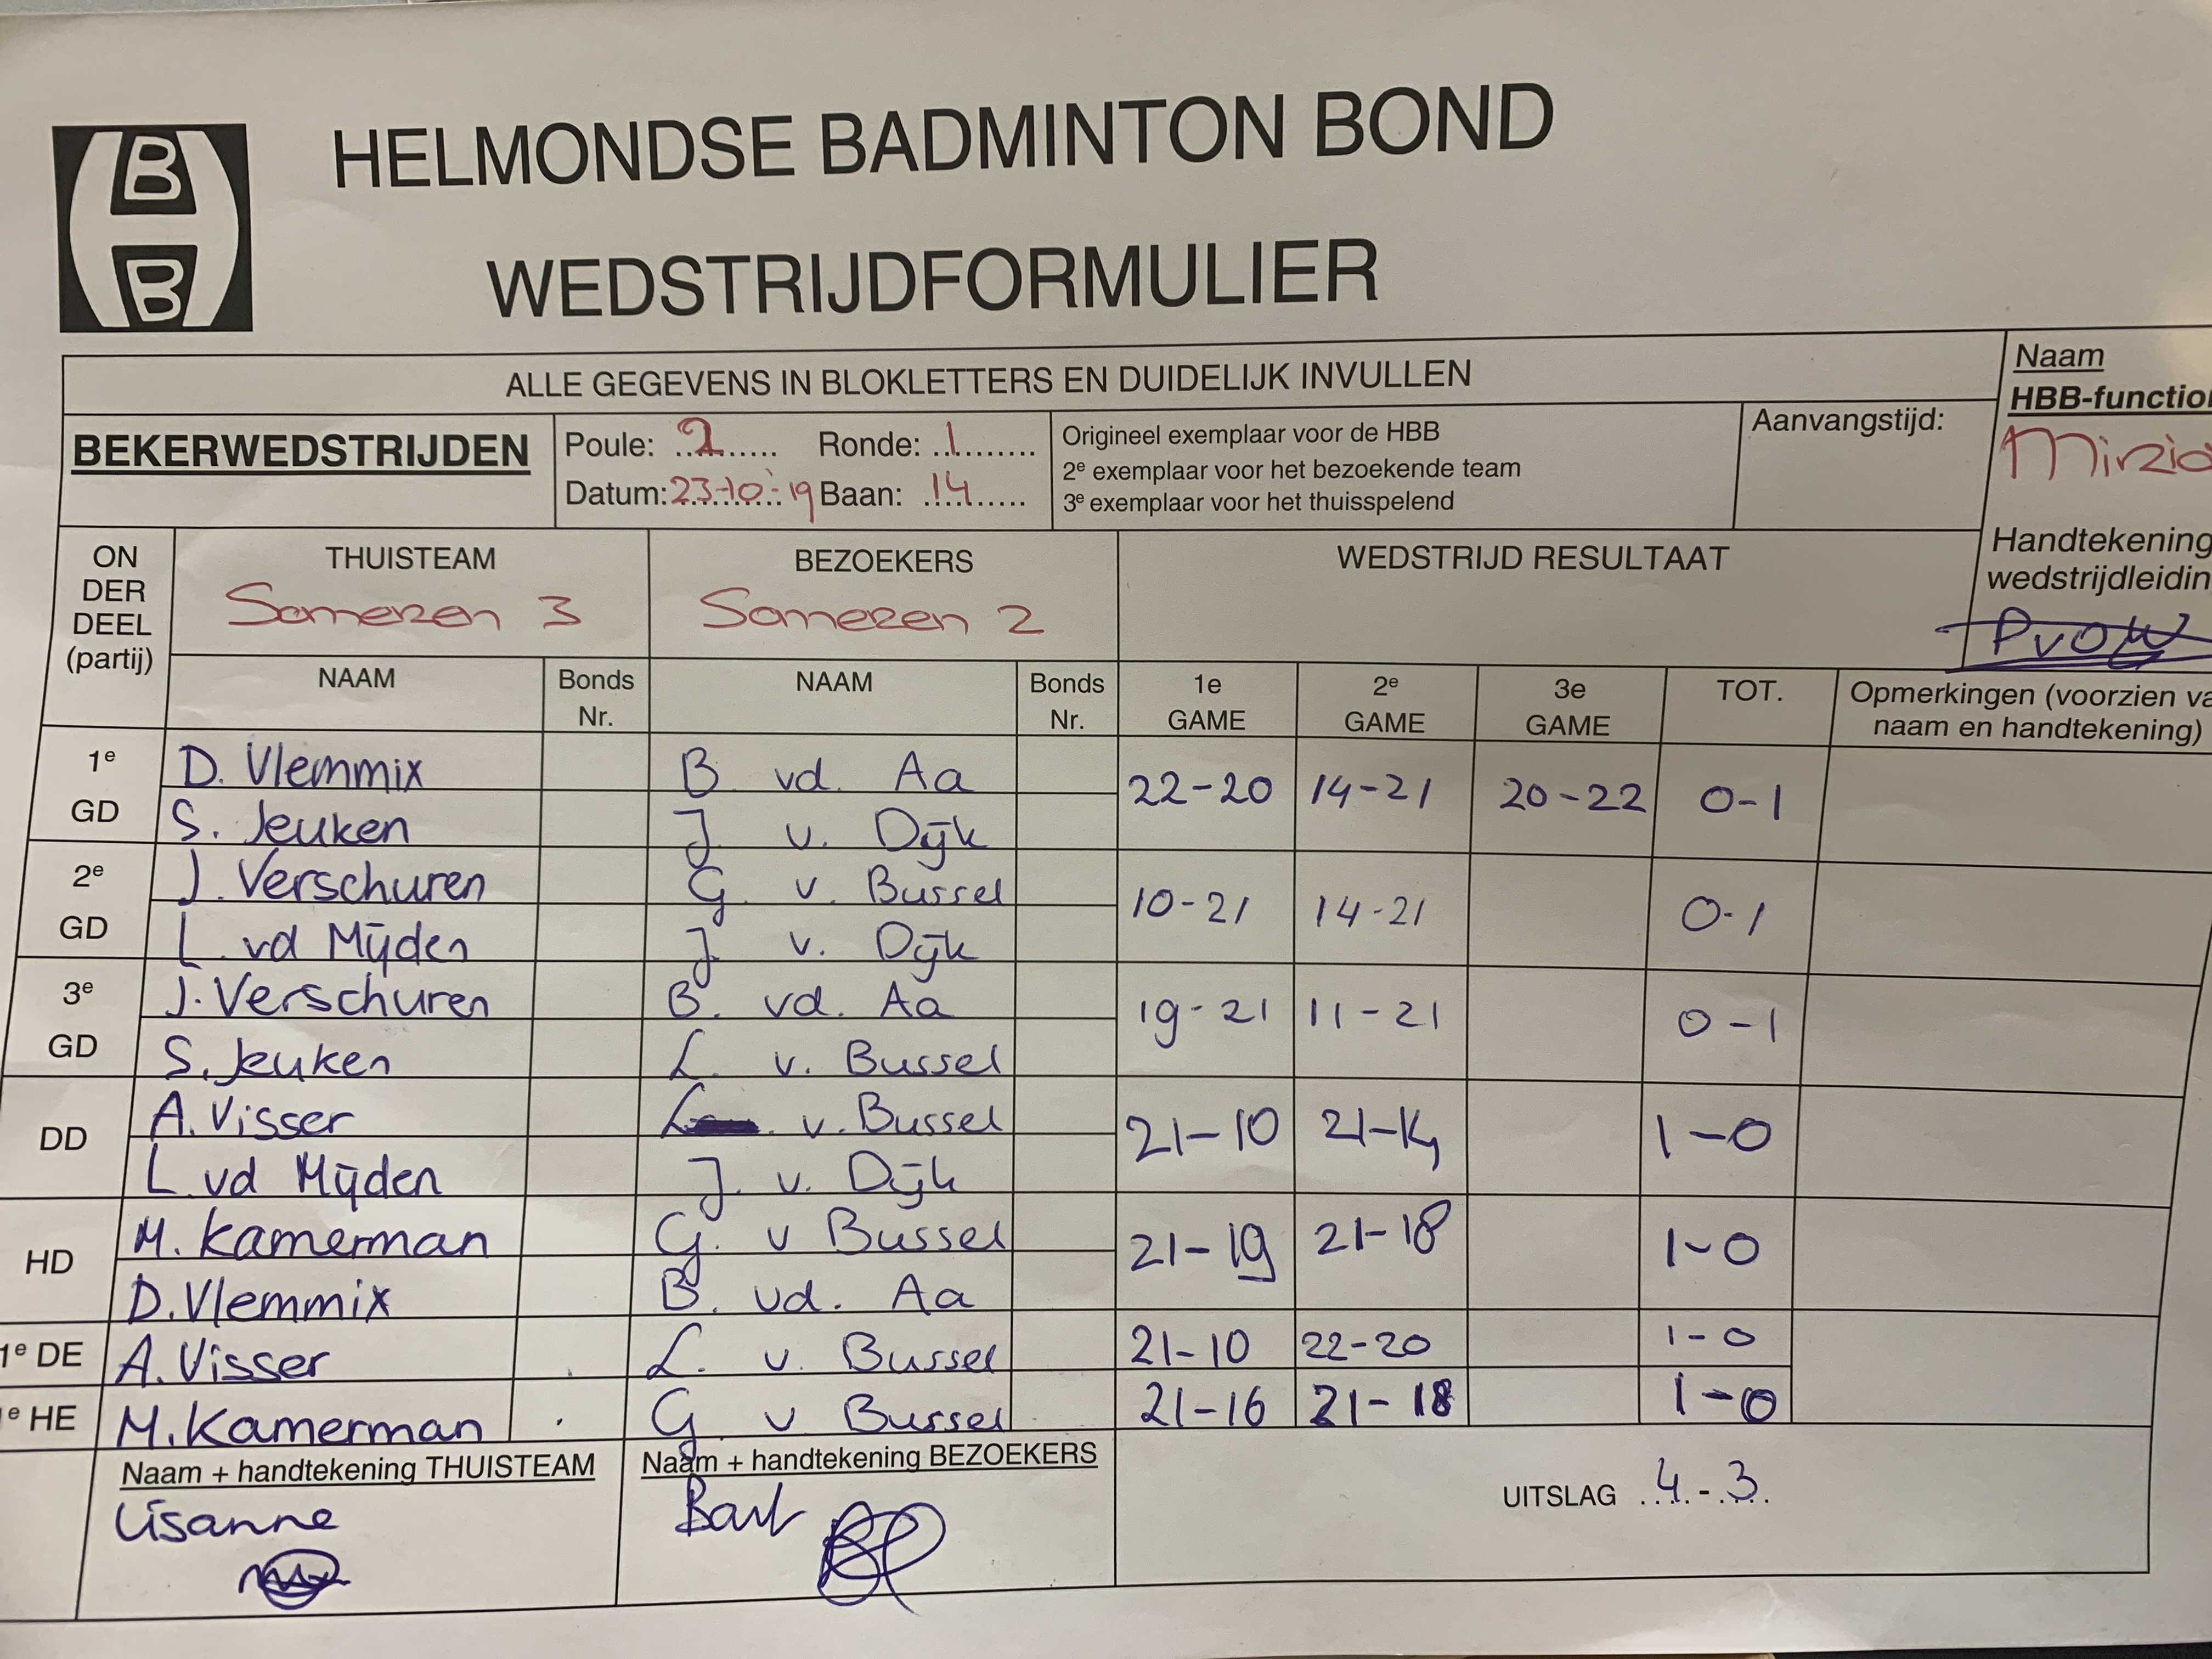 B
B
HELMONDSE BADMINTON BOND
WEDSTRIJDFORMULIER
ALLE GEGEVENS IN BLOKLETTERS EN DUIDELIJK INVULLEN
Naam
HBB-function
Mirzia
BEKERWEDSTRIJDEN
Poule: 2 Ronde: 1
Datum: 23-10-19 Baan: 14
Origineel exemplaar voor de HBB
2e exemplaar voor het bezoekende team
3e exemplaar voor het thuisspelend
Aanvangstijd:
Handtekening
wedstrijdleidin
PvOW
ON
DER
DEEL
(partij)
THUISTEAM
Someren 3
BEZOEKERS
Someren 2
WEDSTRIJD RESULTAAT
NAAM Bonds Nr. NAAM Bonds Nr. 1e GAME 2e GAME 3e GAME TOT. Opmerkingen (voorzien va
naam en handtekening)
1e GD
D. Vlemmix B vd. Aa 22-20 14-21 20-22 0-1
S. Jeuken J v. Dijk
2e GD
J. Verschuren G. v. Bussel 10-21 14-21 0-1
L vd Mijden J. v. Dijk
3e GD
J. Verschuren B. vd. Aa 19-21 11-21 0-1
S. Jeuken L. v. Bussel
DD
A. Visser L. v. Bussel 21-10 21-14 1-0
L vd Mijden J. v. Dijk
HD
M. Kamerman G. v Bussel 21-19 21-18 1-0
D. Vlemmix B. vd. Aa
1e DE A. Visser L. v. Bussel 21-10 22-20 1-0
e HE M. Kamerman G. v Bussel 21-16 21-18 1-0
Naam + handtekening THUISTEAM
Lisanne
Naam + handtekening BEZOEKERS
Bart
UITSLAG 4 - 3